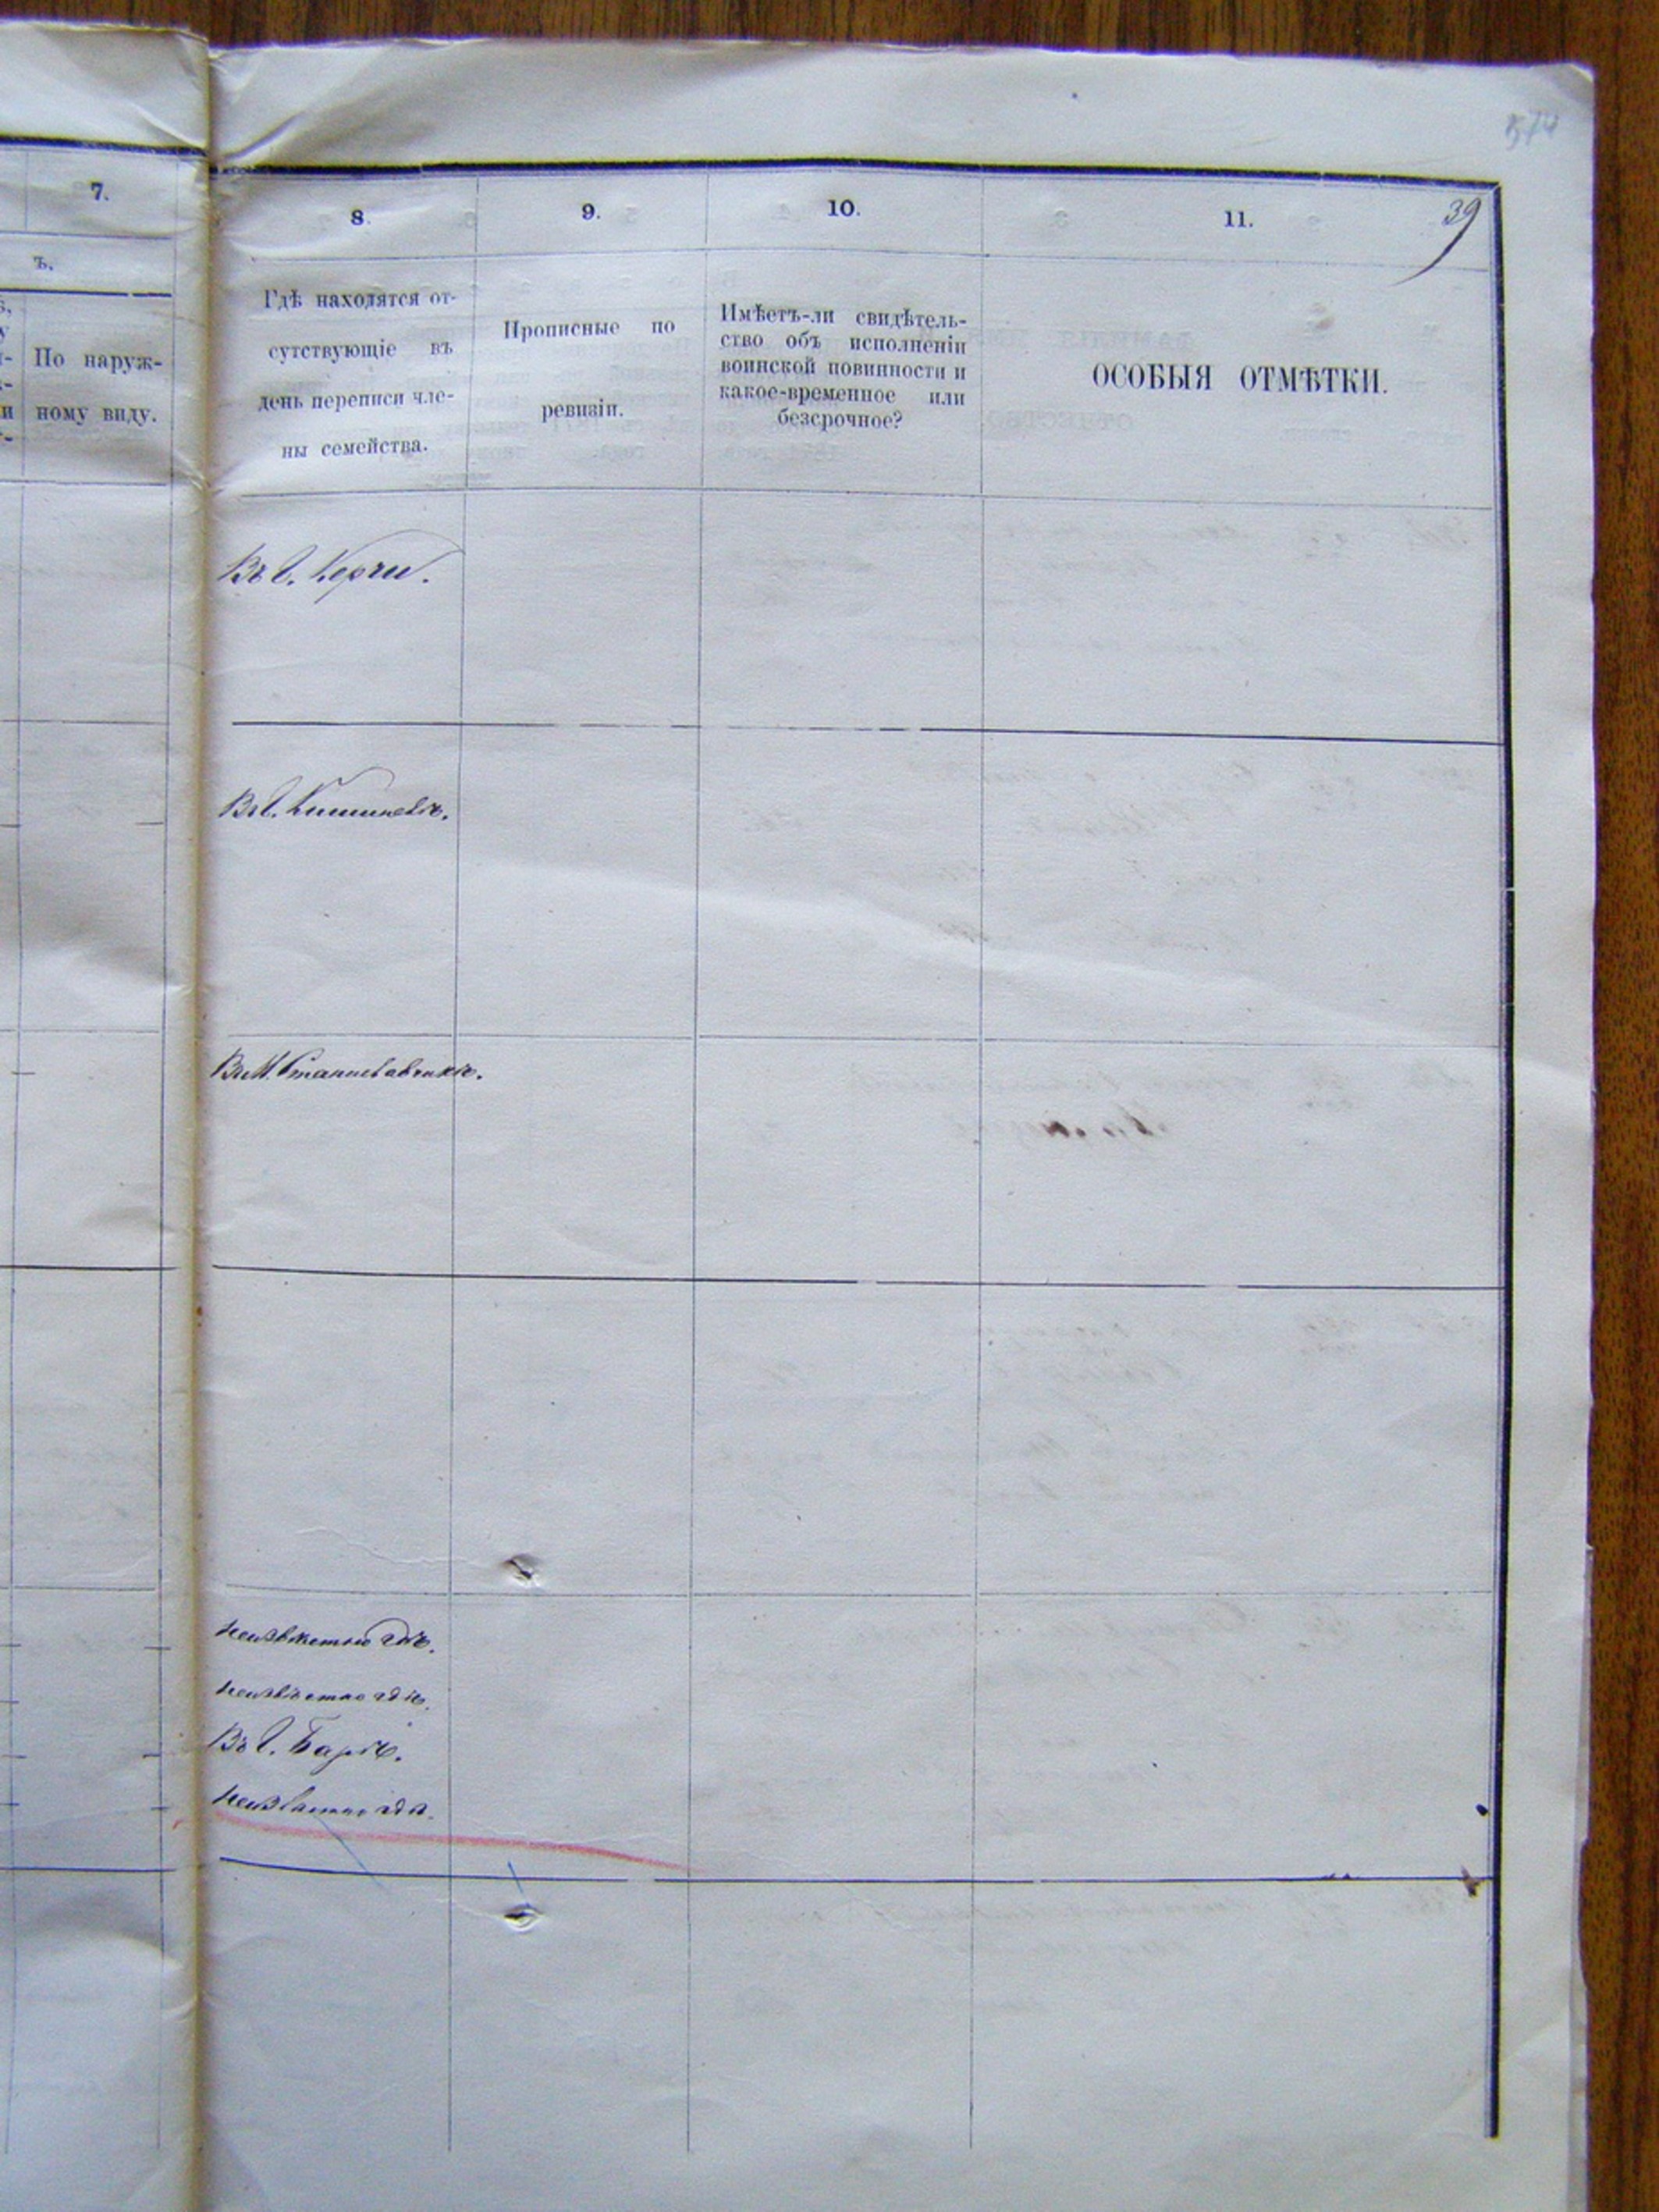 574
39
7.
8.
9.
10.
11.
ъ.
По наруж-
ному виду.
Гдѣ находятся от-
сутствующіе въ
день переписи чле-
ны семейства.
Прописные по
ревизіи.
Имѣетъ-ли свидѣтель-
ство объ исполненіи
воинской повинности и
какое-временное или
безсрочное?
ОСОБЫЯ ОТМѢТКИ.
Въ г. Керчи.
Въ г. Кишиневѣ.
Въ м.
неизвѣстно гдѣ.
неизвѣстно гдѣ.
Въ г. Барѣ.
неизвѣстно гдѣ.